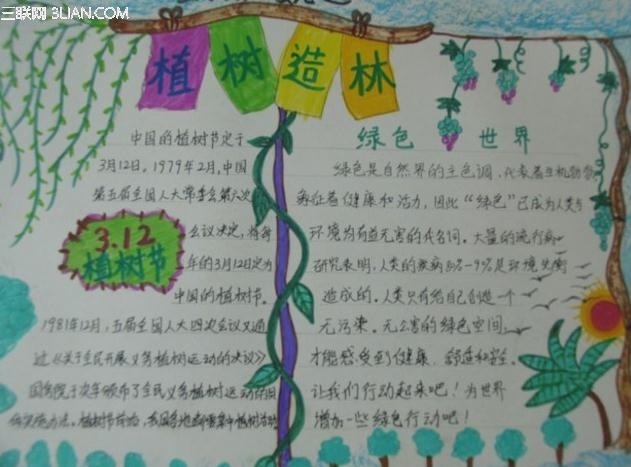 三联网 3LIAN.COM
植树造林
中国的植树节定于
3月12日。1979年2月,中国
第五届全国人大常委会第六次
会议决定,将每
年的3月12日定为
中国的植树节。
3.12
植树节
1981年12月,五届全国人大四次会议又通
过《关于全民开展义务植树运动的决议》
国务院于次年颁布了全民义务植树运动的
绿色世界
绿色是自然界的主色调,代表着生机勃勃
象征着健康和活力,因此“绿色”已成为人类与
环境为有益无害的代名词。大量的流行病
研究表明,人类的疾病
是环境失衡
造成的。人类只有给自己创造一个
无污染。无公害的绿色空间,
才能感受到健康、舒适和安全。
让我们行动起来吧!为世界
增加一些绿色行动吧!